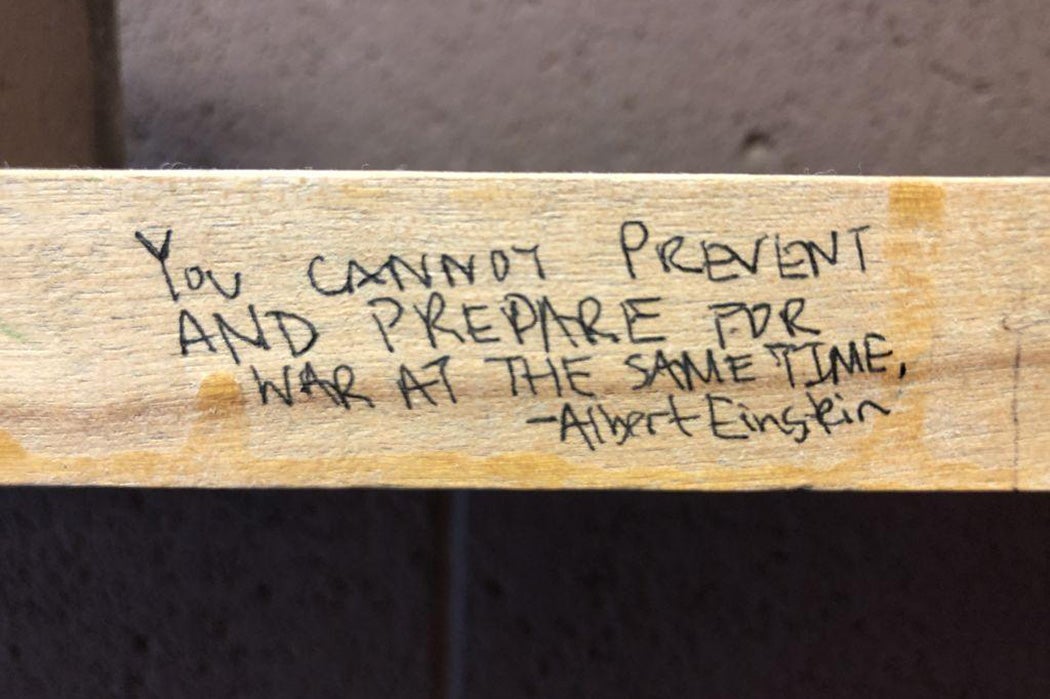 You CANNOT PREVENT
AND PREPARE FOR
WAR AT THE SAME TIME.
-Albert Einstein